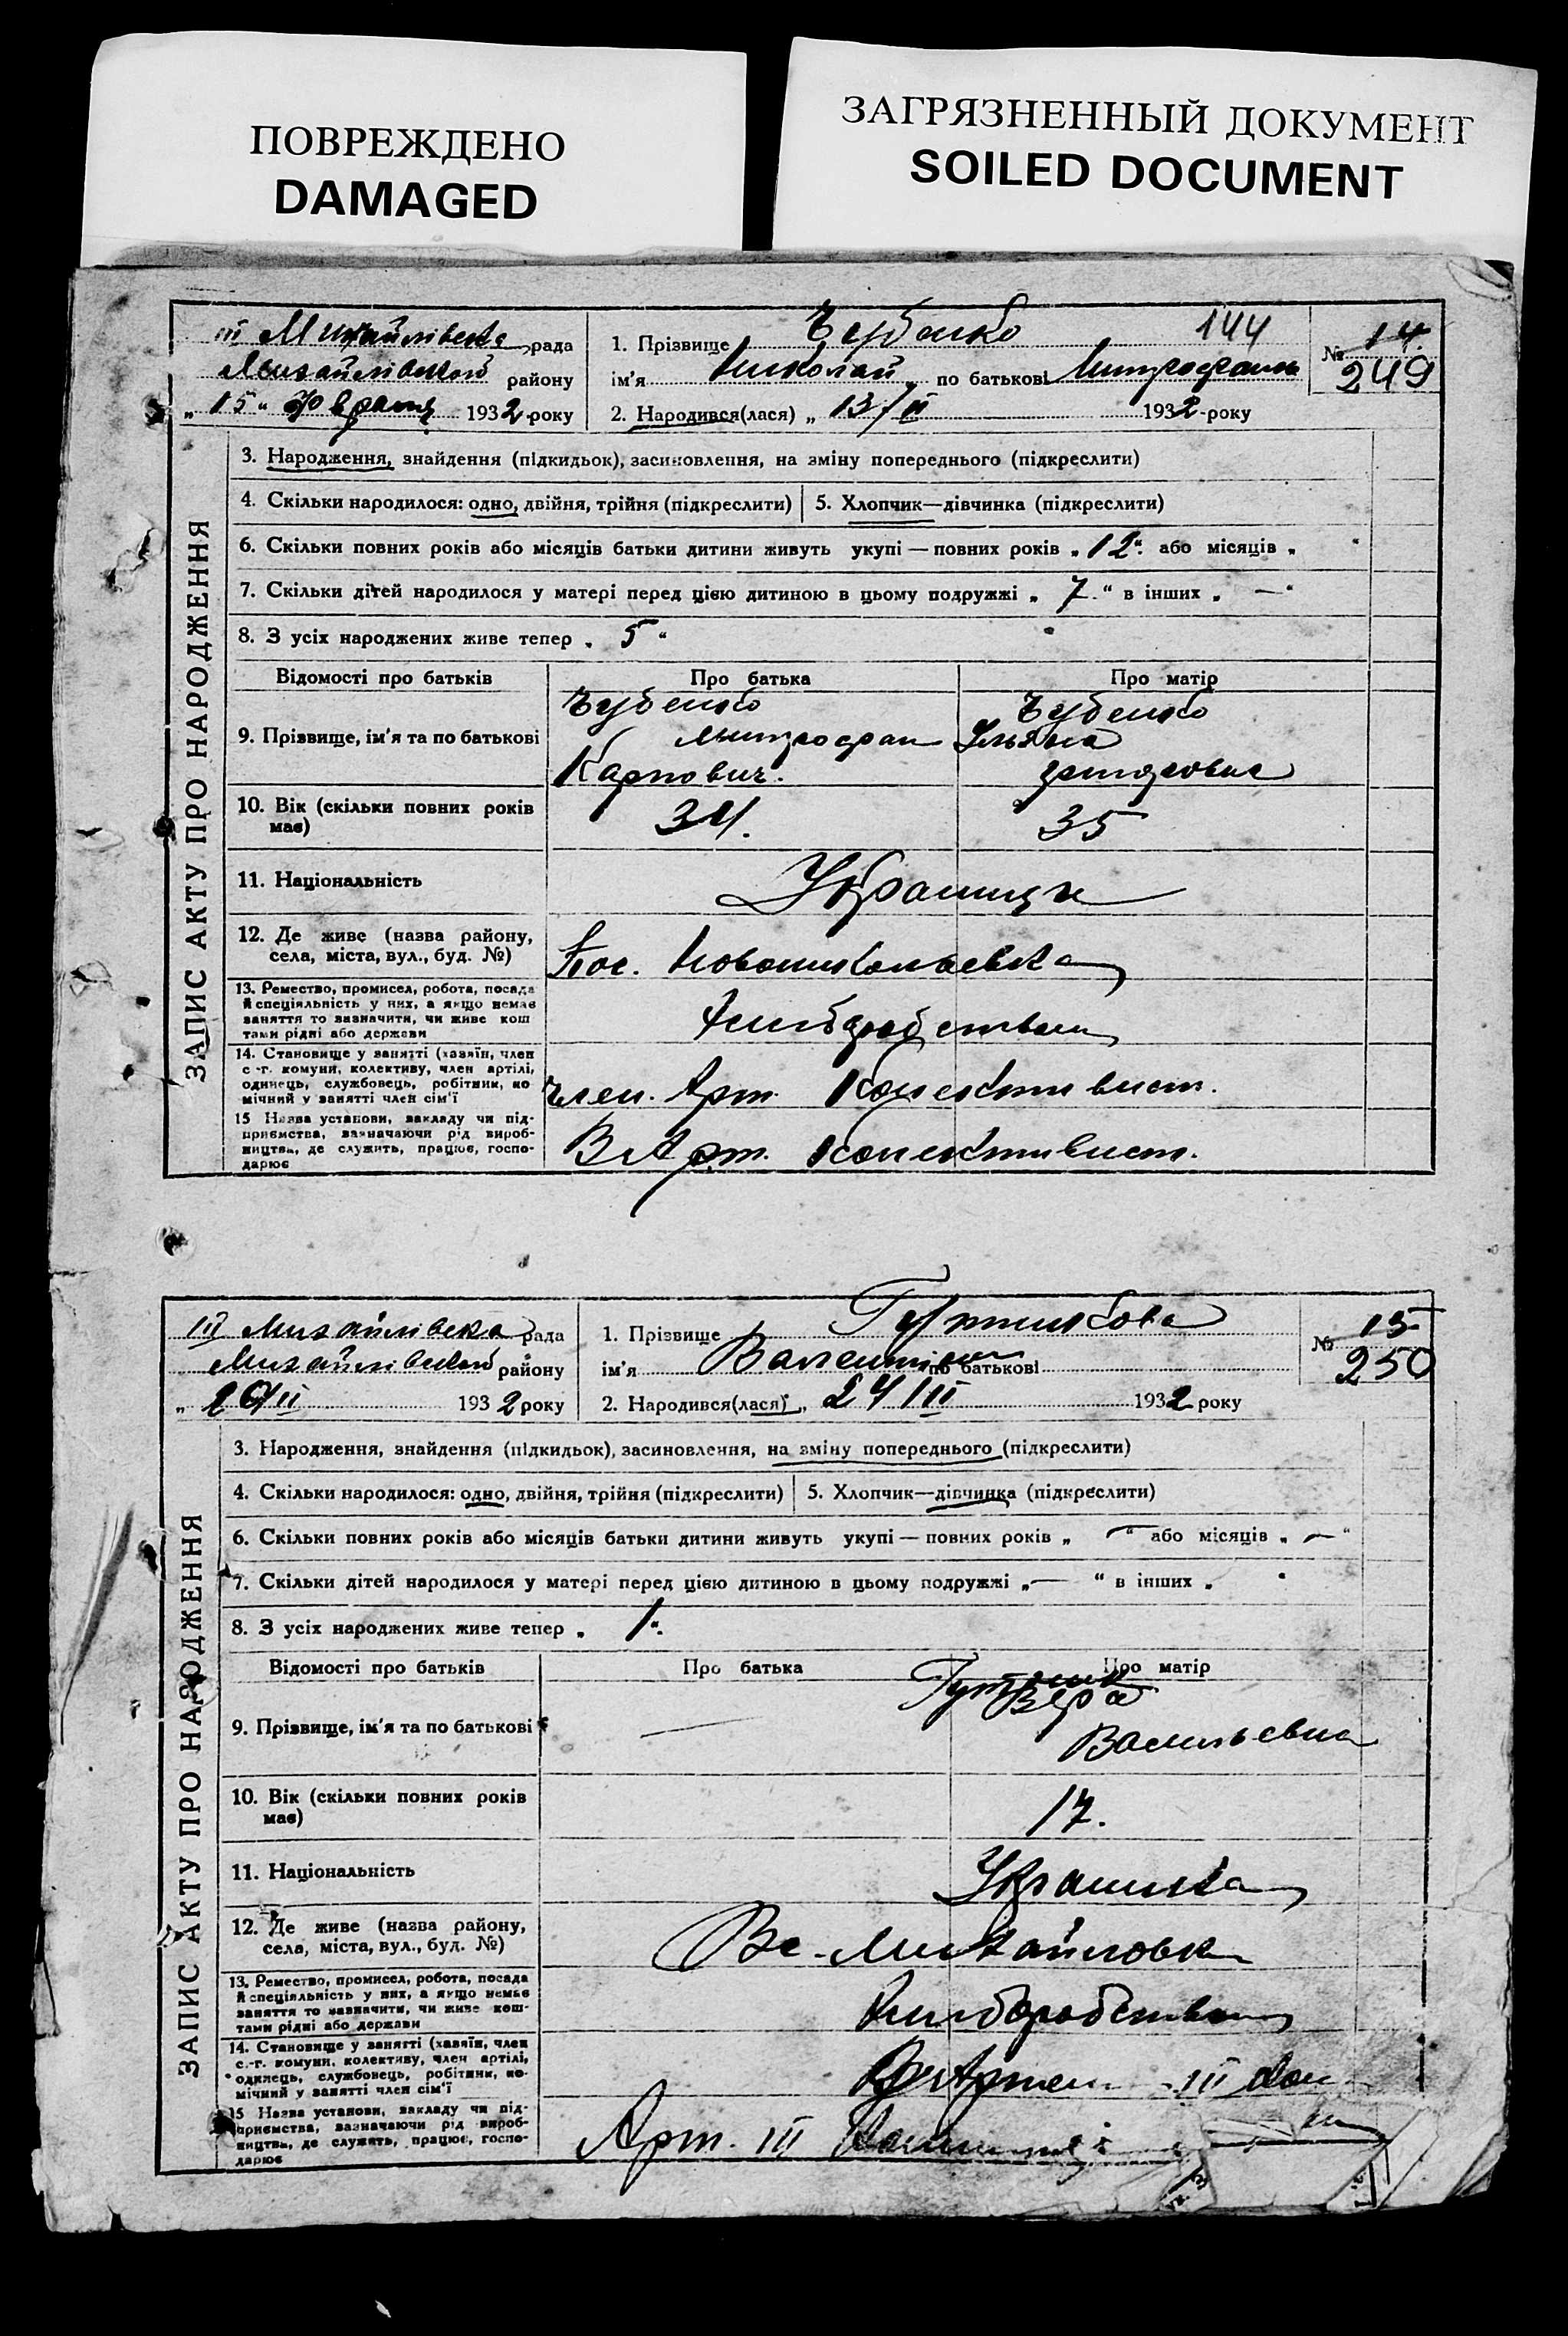 ПОВРЕЖДЕНО
DAMAGED
ЗАГРЯЗНЕННЫЙ ДОКУМЕНТ
SOILED DOCUMENT
ЗАПИС АКТУ ПРО НАРОДЖЕННЯ
III Михайлівська рада
Михайлівської району
„ 15 “ Февраля 1932 року
1. Прізвище Чубенко 144
ім'я Николай по батькові
2. Народився(лася) „ 13/II 1932 року
№ 14
249
3. Народження, знайдення (підкидьок), засиновлення, на зміну попереднього (підкреслити)
4. Скільки народилося: одно, двійня, трійня (підкреслити)
5. Хлопчик—дівчинка (підкреслити)
6. Скільки повних років або місяців батьки дитини живуть укупі — повних років „ 12 “ або місяців „ “
7. Скільки дітей народилося у матері перед цією дитиною в цьому подружжі „ 7 “ в інших „ — “
8. З усіх народжених живе тепер „ 5 “
Відомості про батьків
Про батька
Про матір
9. Прізвище, ім'я та по батькові
Чубенко
Митрофан
Карпович.
Чубенко
Ульяна
10. Вік (скільки повних років має)
34.
35
11. Національність
12. Де живе (назва району, села, міста, вул., буд. №)
Пос. Новониколаевка
13. Ремество, промисел, робота, посада
й спеціяльність у них, а якщо немає
заняття то зазначити, чи живе кош
тами рідні або держави
Хлиборобством
14. Становище у занятті (хазяїн, член
с.-г. комуни, колективу, член артілі,
одинець, службовець, робітник, по
мічний у занятті член сім'ї
член. Арт. Колективист.
15 Назва установи, закладу чи під-
приємства, зазначаючи рід вироб-
ництва, де служить, працює, госпо-
дарює
В Арт. Колективист.
ЗАПИС АКТУ ПРО НАРОДЖЕННЯ
III Михайлівська рада
Михайлівської району
1932 року
1. Прізвище
ім'я Валентина по батькові
2. Народився(лася) „ 1932 року
№ 15
250
3. Народження, знайдення (підкидьок), засиновлення, на зміну попереднього (підкреслити)
4. Скільки народилося: одно, двійня, трійня (підкреслити)
5. Хлопчик—дівчинка (підкреслити)
6. Скільки повних років або місяців батьки дитини живуть укупі — повних років „ — “ або місяців „ — “
7. Скільки дітей народилося у матері перед цією дитиною в цьому подружжі „ — “ в інших „ “
8. З усіх народжених живе тепер „ 1 “
Відомості про батьків
Про батька
Про матір
9. Прізвище, ім'я та по батькові
—
Вера
Васильевна
10. Вік (скільки повних років має)
17.
11. Національність
Украинка
12. Де живе (назва району, села, міста, вул., буд. №)
Михайловка
13. Ремество, промисел, робота, посада
й спеціяльність у них, а якщо немає
заняття то зазначити, чи живе кош-
тами рідні або держави
Хлиборобством
14. Становище у занятті (хазяїн, член
с.-г. комуни, колективу, член артілі,
одинець, службовець, робітник, по-
мічний у занятті член сім'ї
15 Назва установи, закладу чи під-
приємства, зазначаючи рід вироб-
ництва, де служить, працює, госпо-
дарює
Арт. III